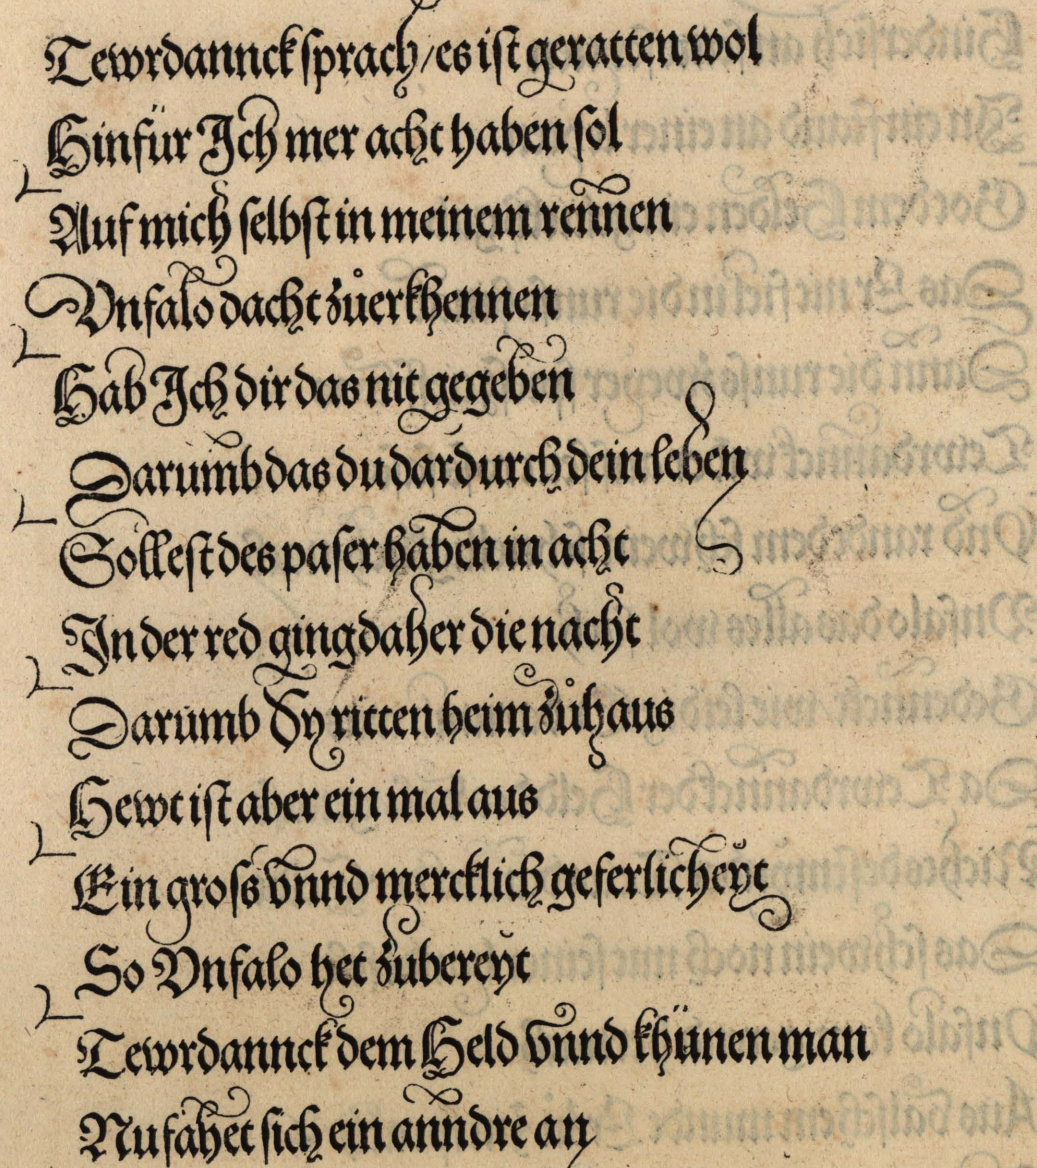 Tewrdannck sprach / es ist geratten wol
Hinfür Ich mer acht haben sol
Auf mich selbst in meinem rennen
Vnfalo dacht zůerkhennen
Hab Ich dir das nit gegeben
Darumb das du dardurch dein leben
Sollest des paser haben in acht
In der red ging daher die nacht
Darumb Sy ritten heim zůhaus
Hewt ist aber ein mal aus
Ein gross vnnd mercklich geferlicheyt
So Vnfalo het zubereyt
Tewrdannck dem Held vnnd khünen man
Nu fahet sich ein anndre an